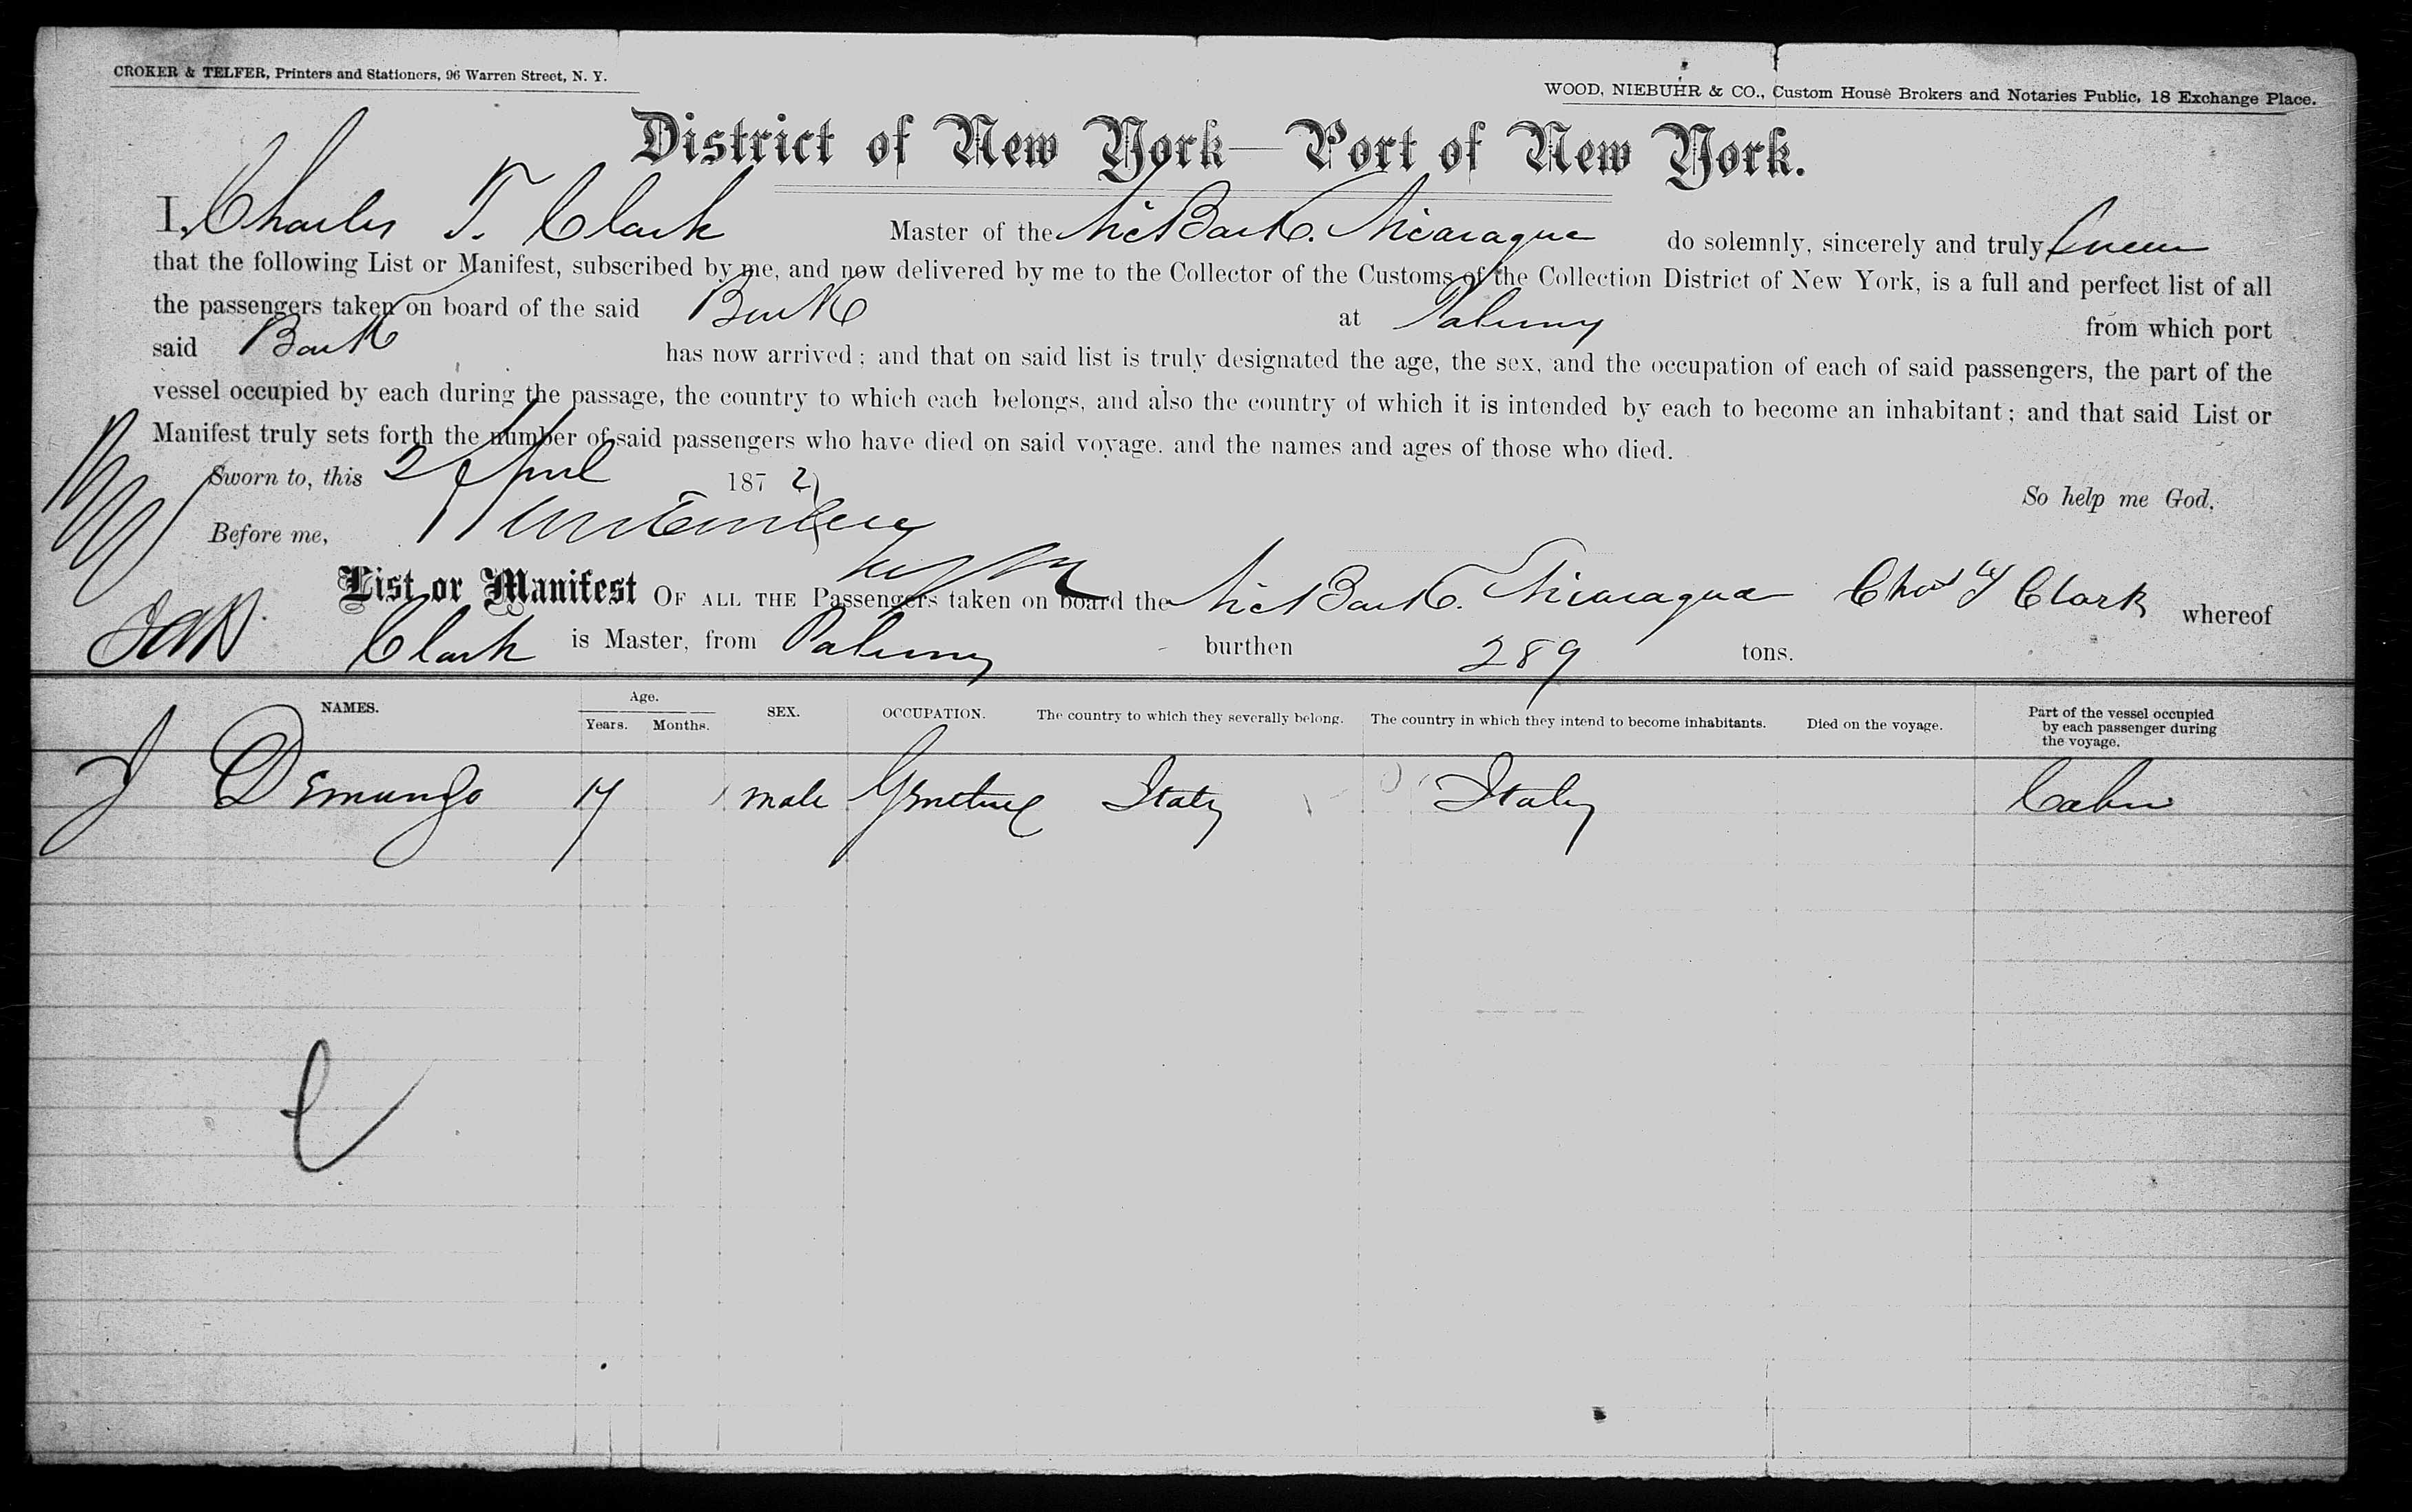 CROKER & TELFER, Printers and Stationers, 96 Warren Street, N. Y.
WOOD, NIEBUHR & CO., Custom House Brokers and Notaries Public, 18 Exchange Place.
District of New York—Port of New York.
I, Charles T. Clark Master of the Nic Bark. Nicaragua do solemnly, sincerely and truly swear
that the following List or Manifest, subscribed by me, and now delivered by me to the Collector of the Customs of the Collection District of New York, is a full and perfect list of all
the passengers taken on board of the said Bark at Palermo from which port
said Bark has now arrived; and that on said list is truly designated the age, the sex, and the occupation of each of said passengers, the part of the
vessel occupied by each during the passage, the country to which each belongs, and also the country of which it is intended by each to become an inhabitant; and that said List or
Manifest truly sets forth the number of said passengers who have died on said voyage. and the names and ages of those who died.
Sworn to, this 2 April 1872 So help me God,
Before me,
List or Manifest OF ALL THE Passengers taken on board the Nic Bark. Nicaragua Chas T Clark whereof
Clark is Master, from Palermo burthen 289 tons.
NAMES. Age. Years. Months. SEX. OCCUPATION. The country to which they severally belong. The country in which they intend to become inhabitants. Died on the voyage. Part of the vessel occupied by each passenger during the voyage.
J Demungo 17 male Italy Italy Cabin